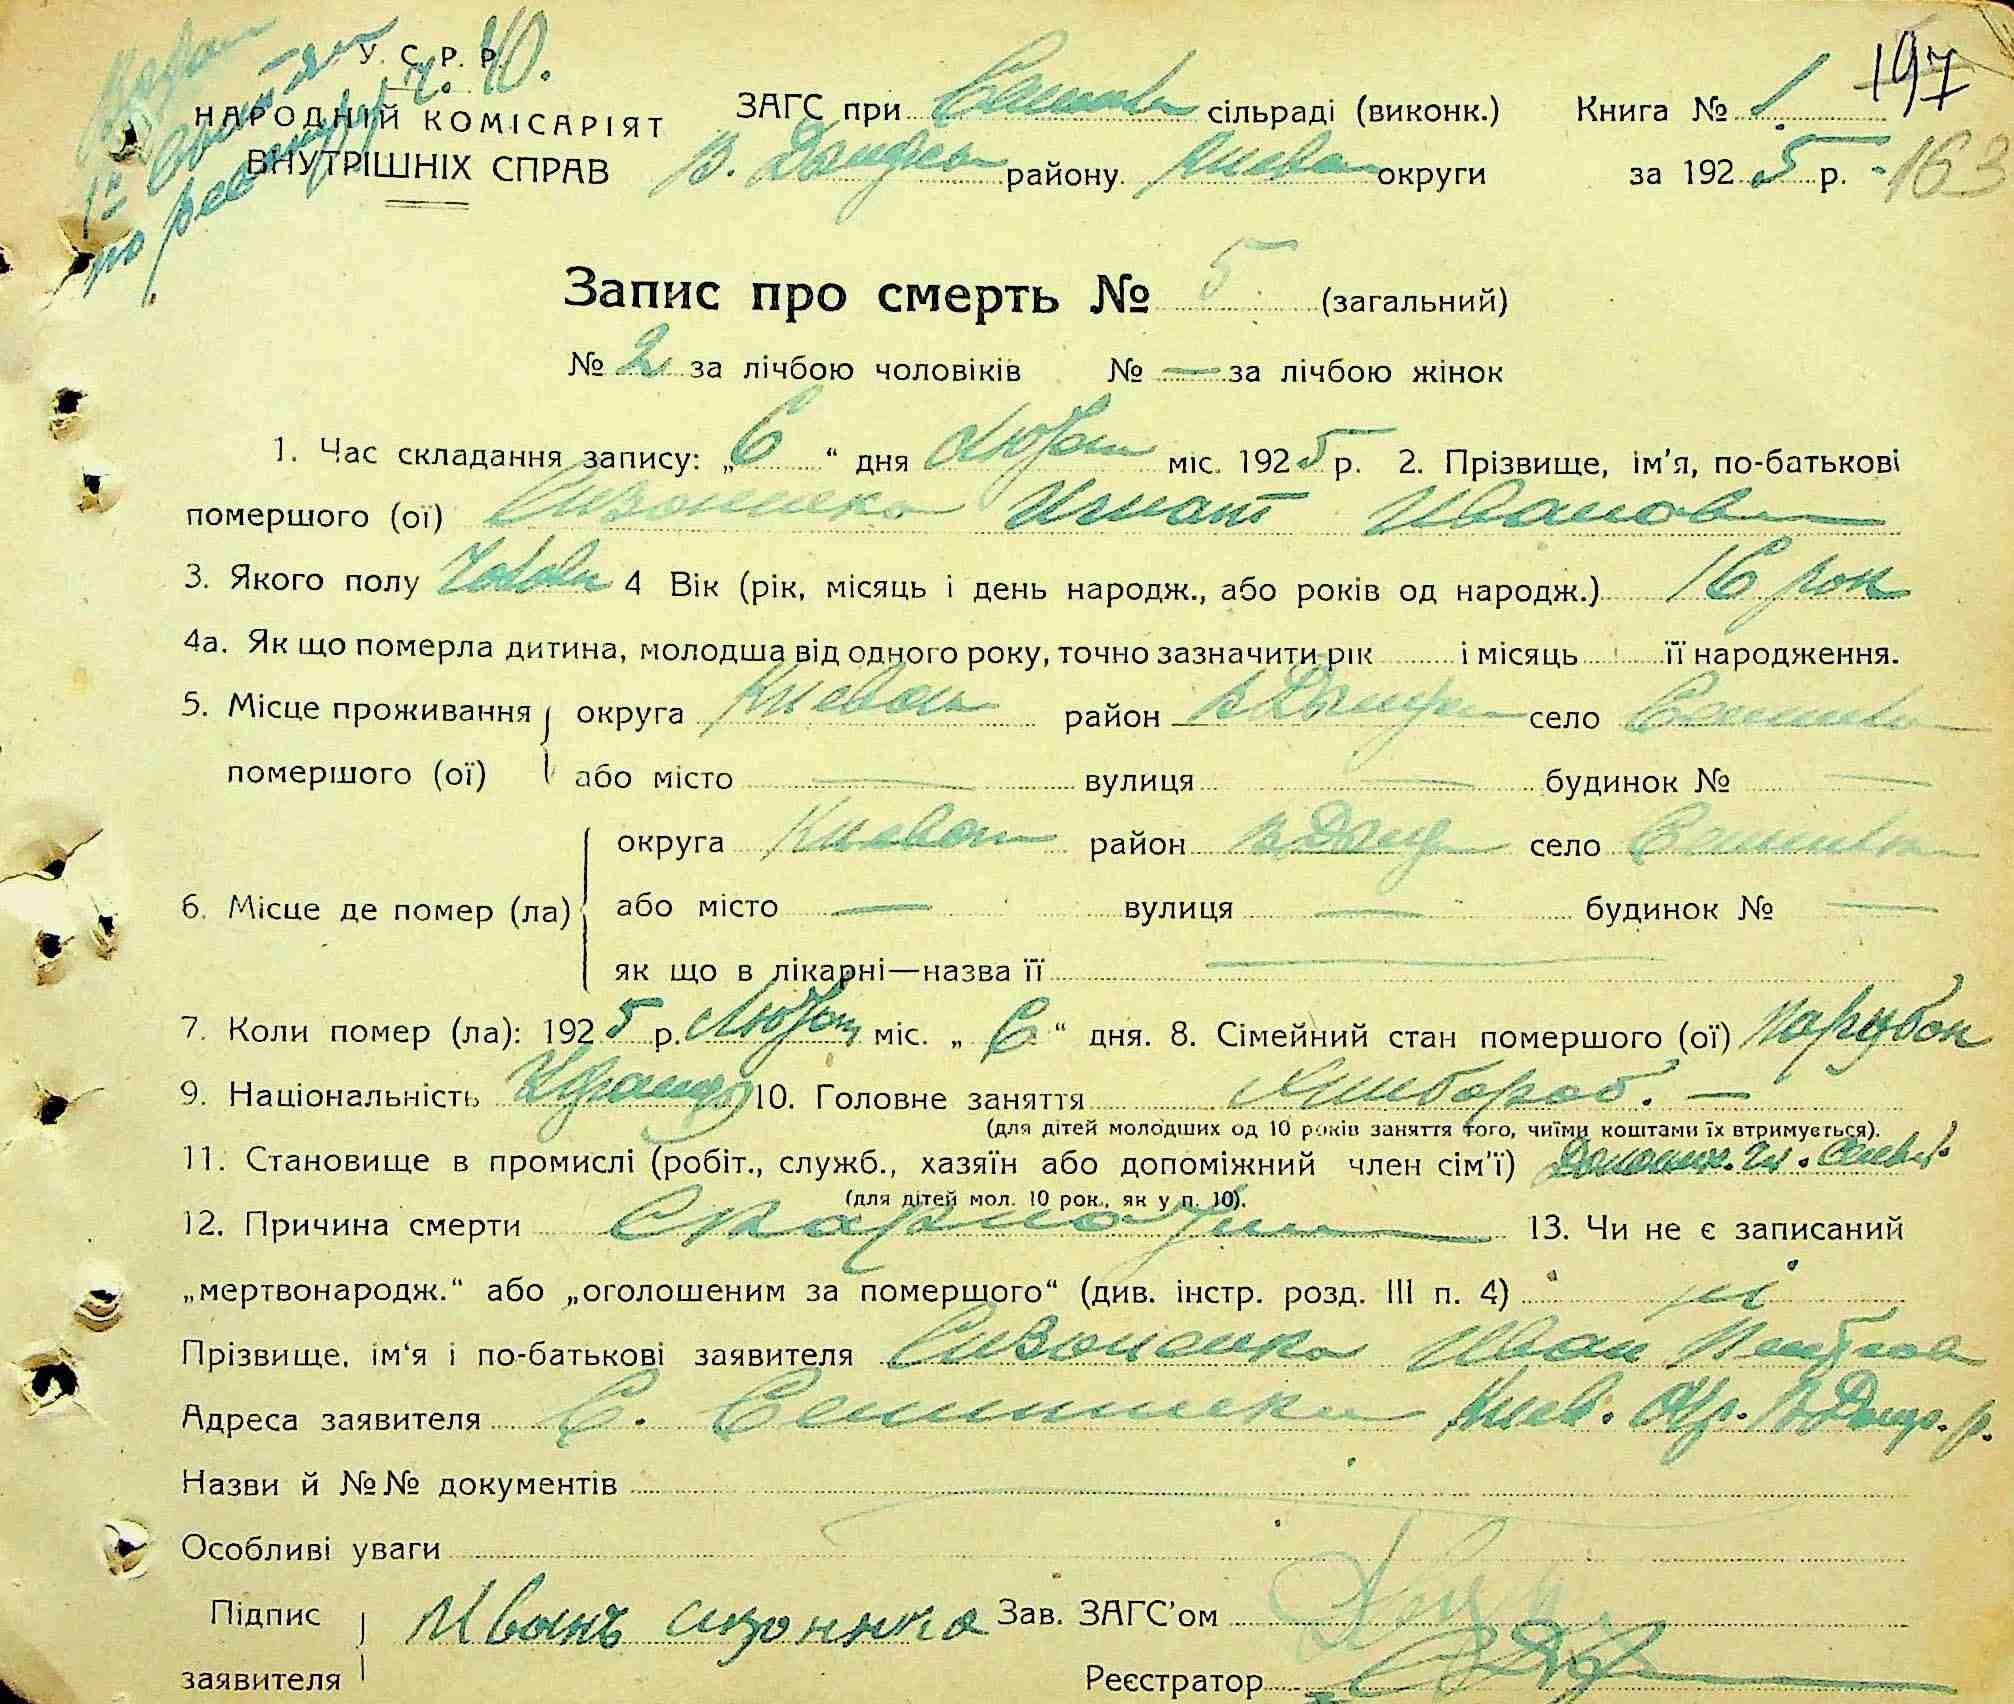 У. С. Р. Р.
НАРОДНІЙ КОМІСАРІЯТ
ВНУТРІШНІХ СПРАВ
ч. 40.
197
ЗАГС при сільраді (виконк.) Книга № 1
району Киевск округи за 1925 р. - 163
Запис про смерть № 5 (загальний)
№ 2 за лічбою чоловіків № — за лічбою жінок
1. Час складання запису: „6“ дня Лютого міс. 1925 р. 2. Прізвище, ім'я, по-батькові
помершого (ої) Сизоненко Игнат Иванов
3. Якого полу Чолов 4 Вік (рік, місяць і день народж., або років од народж.) 16 рок
4а. Як що померла дитина, молодша від одного року, точно зазначити рік і місяць її народження.
5. Місце проживання округа Киевськ район В Дымер село
помершого (ої) або місто — вулиця — будинок № —
округа Киевськ район В Дымер село
6. Місце де помер (ла) або місто — вулиця — будинок № —
як що в лікарні—назва її —
7. Коли помер (ла): 1925 р. Лютого міс. „6“ дня. 8. Сімейний стан помершого (ої) Парубок
9. Національність Украинец 10. Головне заняття Хлебороб. —
(для дітей молодших од 10 років заняття того, чиїми коштами їх втримується).
11. Становище в промислі (робіт., служб., хазяїн або допоміжний член сім'ї) Допомиж. чл. семьи.
(для дітей мол. 10 рок., як у п. 10).
12. Причина смерти Скарлотин 13. Чи не є записаний
„мертвонародж.“ або „оголошеним за помершого“ (див. інстр. розд. III п. 4) ні
Прізвище, ім'я і по-батькові заявителя Сизоненко Иван
Адреса заявителя С. Киев. Окр. В Дымер. р.
Назви й №№ документів
Особливі уваги
Підпис заявителя Иванъ сизоннка Зав. ЗАГС'ом
Реєстратор